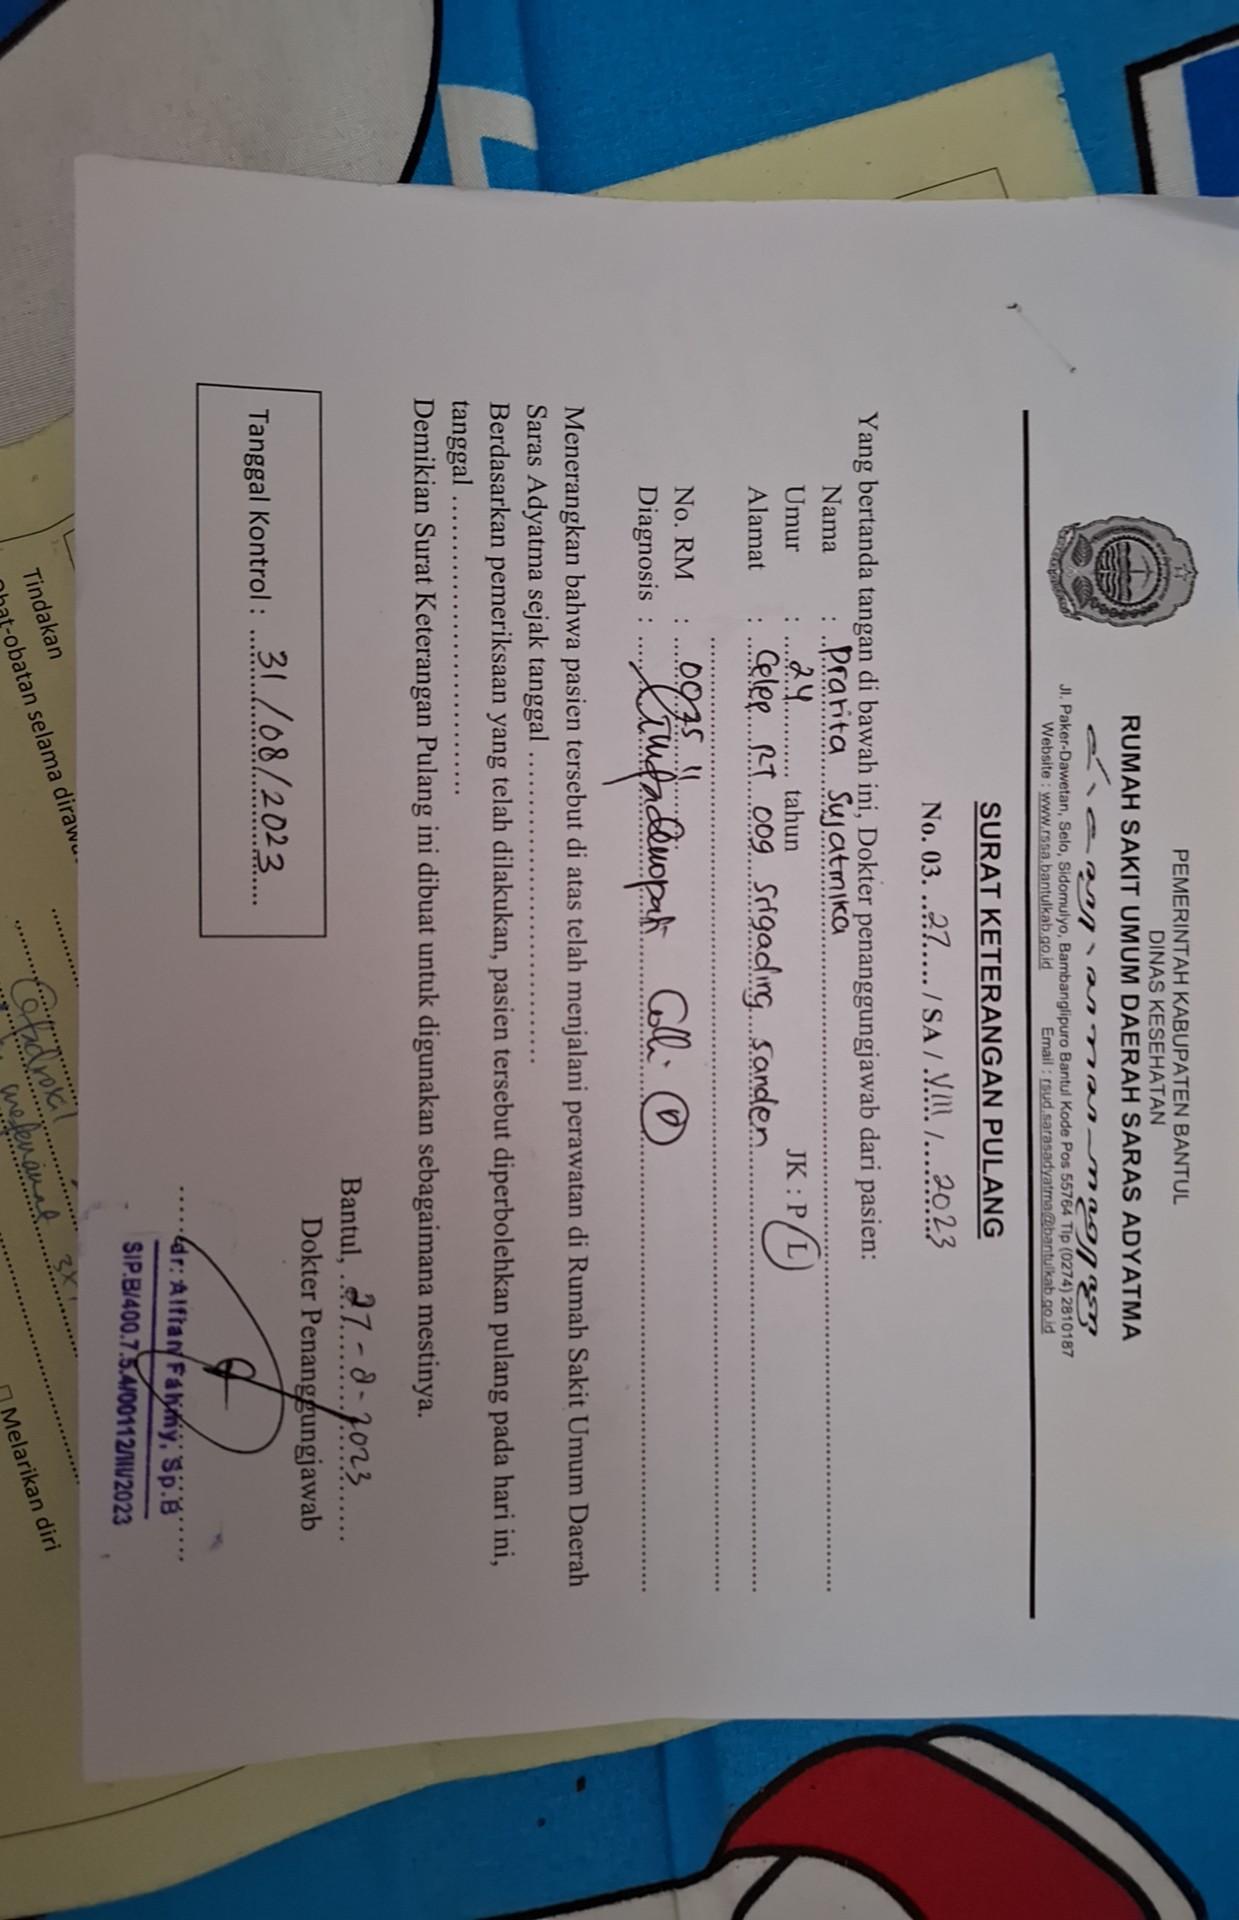 PEMERINTAH KABUPATEN BANTUL
DINAS KESEHATAN
RUMAH SAKIT UMUM DAERAH SARAS ADYATMA
Jl. Paker-Dawetan, Selo, Sidomulyo, Bambanglipuro Bantul Kode Pos 55764 Tlp (0274) 2810187
Website : www.rssa.bantulkab.go.id Email : rsud.sarasadyatma@bantulkab.go.id
SURAT KETERANGAN PULANG
No. 03. 27 / SA / VIII / 2023
Yang bertanda tangan di bawah ini, Dokter penanggungjawab dari pasien:
Nama : Prarita Sujatmika
Umur : 24 tahun JK : P/L
Alamat : Celep RT 009 Srigading Sanden
No. RM : 0975 11
Diagnosis : Limfadenopati Colli D
Menerangkan bahwa pasien tersebut di atas telah menjalani perawatan di Rumah Sakit Umum Daerah
Saras Adyatma sejak tanggal ..............................
Berdasarkan pemeriksaan yang telah dilakukan, pasien tersebut diperbolehkan pulang pada hari ini,
tanggal ..............................
Demikian Surat Keterangan Pulang ini dibuat untuk digunakan sebagaimana mestinya.
Bantul, 27-8-2023
Dokter Penanggungjawab
Tanggal Kontrol : 31/08/2023
dr. Alfian Fahmy, Sp.B
SIP.B/400.7.5.4/00112/III/2023
Tindakan
obat-obatan selama dirawat
3x1
Melarikan diri